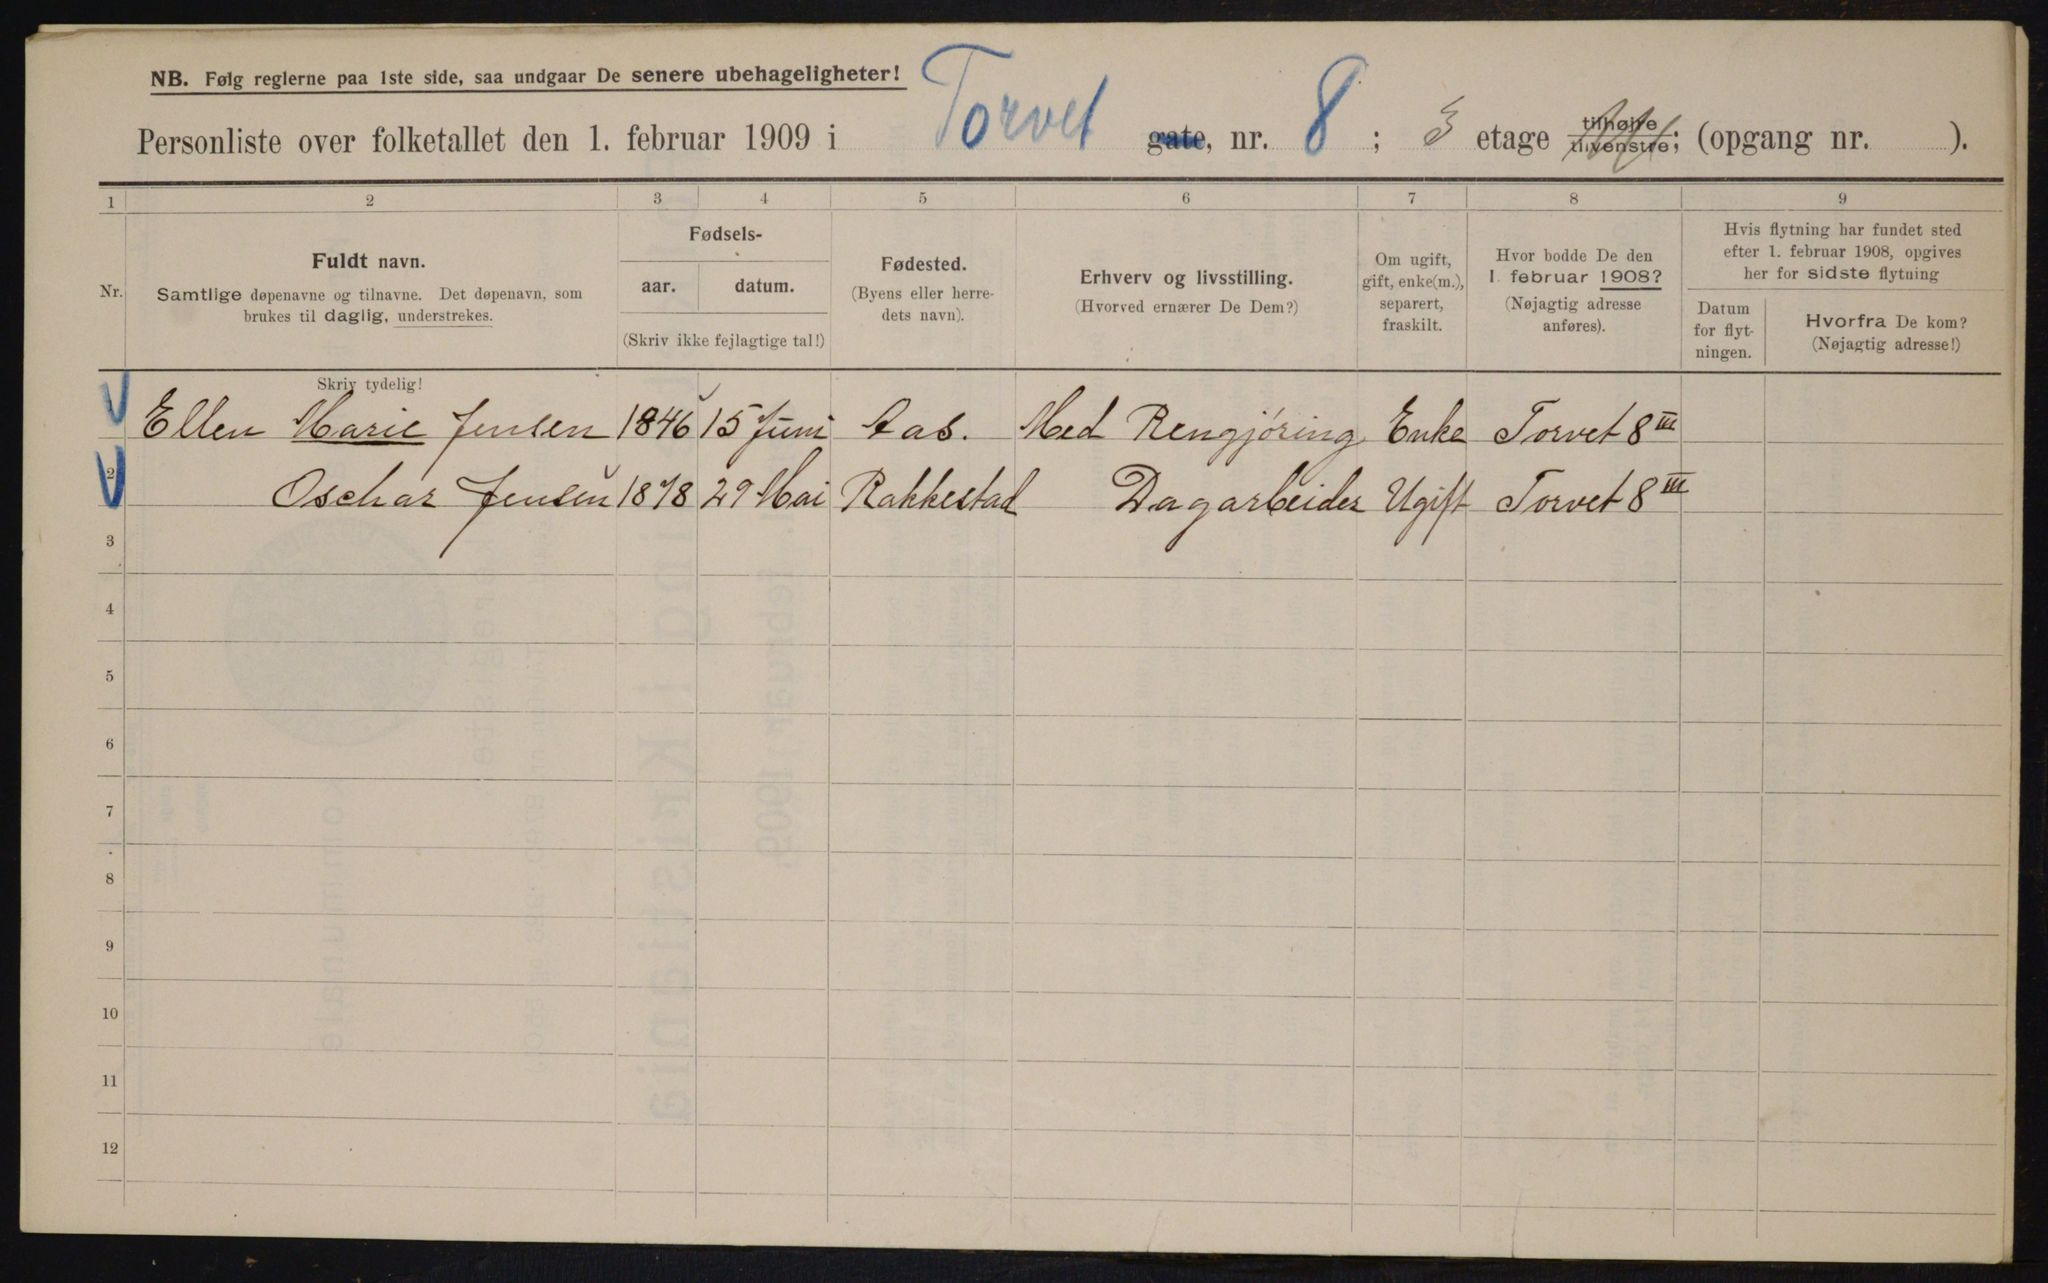 NB. Følg reglerne paa 1ste side, saa undgaar De senere ubehageligheter!
Personliste over folketallet den 1. februar 1909 i Torvet gate, nr. 8; 3 etage tilhøjre tilvenstre; (opgang nr. ).
1 2 3 4 5 6 7 8 9
Nr.
Fuldt navn.
Samtlige døpenavne og tilnavne. Det døpenavn, som
brukes til daglig, understrekes.
Skriv tydelig!
Fødsels-
aar. datum.
(Skriv ikke fejlagtige tal!)
Fødested.
(Byens eller herre-
dets navn).
Erhverv og livsstilling.
(Hvorved ernærer De Dem?)
Om ugift,
gift, enke(m.),
separert,
fraskilt.
Hvor bodde De den
1. februar 1908?
(Nøjagtig adresse
anføres).
Hvis flytning har fundet sted
efter 1. februar 1908, opgives
her for sidste flytning
Datum
for flyt-
ningen.
Hvorfra De kom?
(Nøjagtig adresse!)
Ellen Marie Jensen 1846 15 Juni Aas. Med Rengjøring Enke Torvet 8 III
2 Oschar Jensen 1878 29 Mai Rakkestad Dagarbeider Ugift Torvet 8 III
3
4
5
6
7
8
9
10
11
12